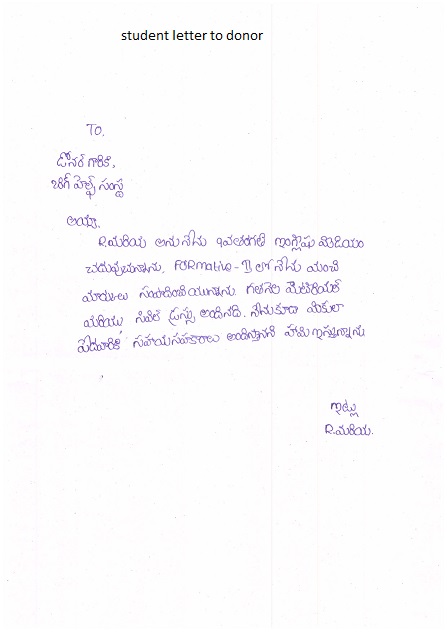 student letter to donor
To,
డోనర్ గారికి,
బిగ్ హెల్ప్ సంస్థ
అయ్యా,
R.మరియ అను నేను 9వతరగతి ఇంగ్లీషు మీడియం
చదువుచున్నాను. FORmative-II లో నేను మంచి
మార్కులు సంపాదించియున్నాను. గతనెల మెటీరియల్
మరియు సివిల్ డ్రస్సు అందినది. నేనుకూడా మీకులా
పేదవారికి సహాయసహకారాలు అందిస్తానని హామి ఇస్తున్నాను
ఇట్లు
R.మరియ.